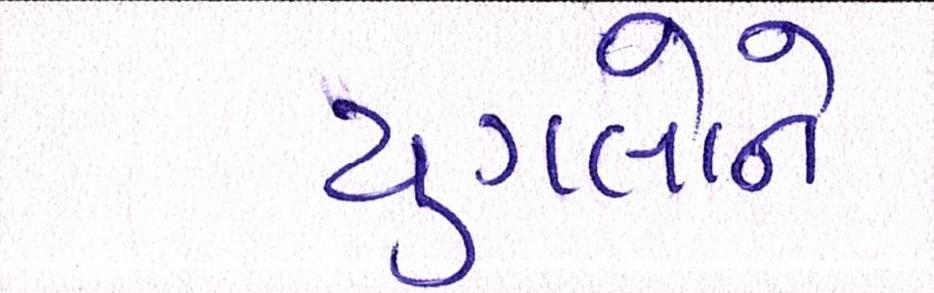 યુગલોને